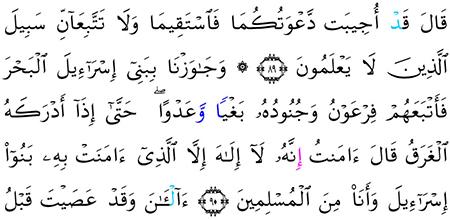 قَالَ قَدۡ أُجِيبَت دَّعۡوَتُكُمَا فَٱسۡتَقِيمَا وَلَا تَتَّبِعَآنِّ سَبِيلَ
ٱلَّذِينَ لَا يَعۡلَمُونَ ﴿٨٩﴾ ۞ وَجَٰوَزۡنَا بِبَنِيٓ إِسۡرَٰٓءِيلَ ٱلۡبَحۡرَ
فَأَتۡبَعَهُمۡ فِرۡعَوۡنُ وَجُنُودُهُۥ بَغۡيٗا وَعَدۡوًاۖ حَتَّىٰٓ إِذَآ أَدۡرَكَهُ
ٱلۡغَرَقُ قَالَ ءَامَنتُ إِنَّهُۥ لَآ إِلَٰهَ إِلَّا ٱلَّذِيٓ ءَامَنَتۡ بِهِۦ بَنُوٓاْ
إِسۡرَٰٓءِيلَ وَأَنَا۠ مِنَ ٱلۡمُسۡلِمِينَ ﴿٩٠﴾ ءَآلۡـَٰٔنَ وَقَدۡ عَصَيۡتَ قَبۡلُ